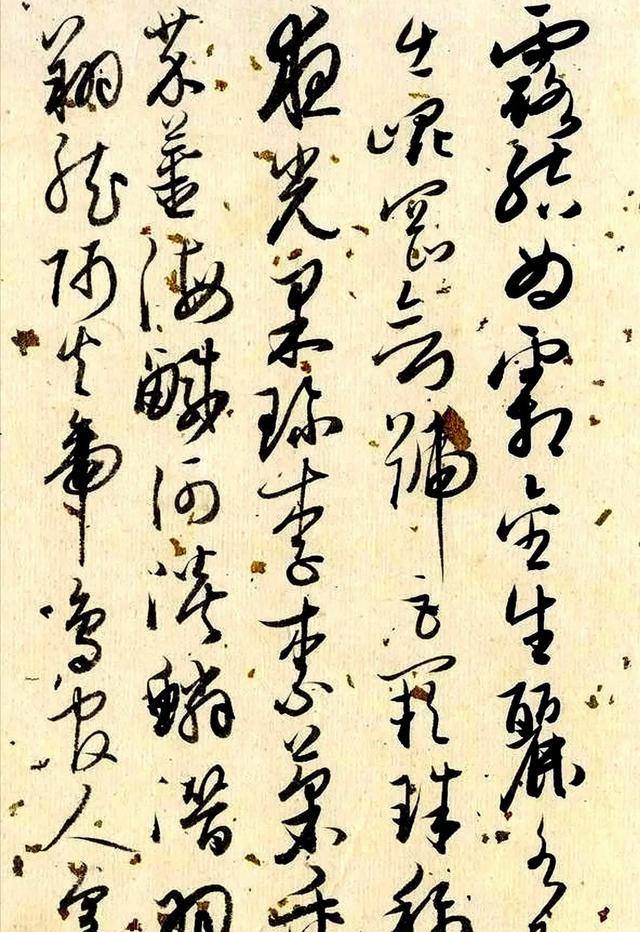 露結為霜金生麗水
出崐岡劍號巨闕珠稱
夜光果珍李柰菜重
芥薑海鹹河淡鱗潛羽
翔龍師火帝鳥官人皇